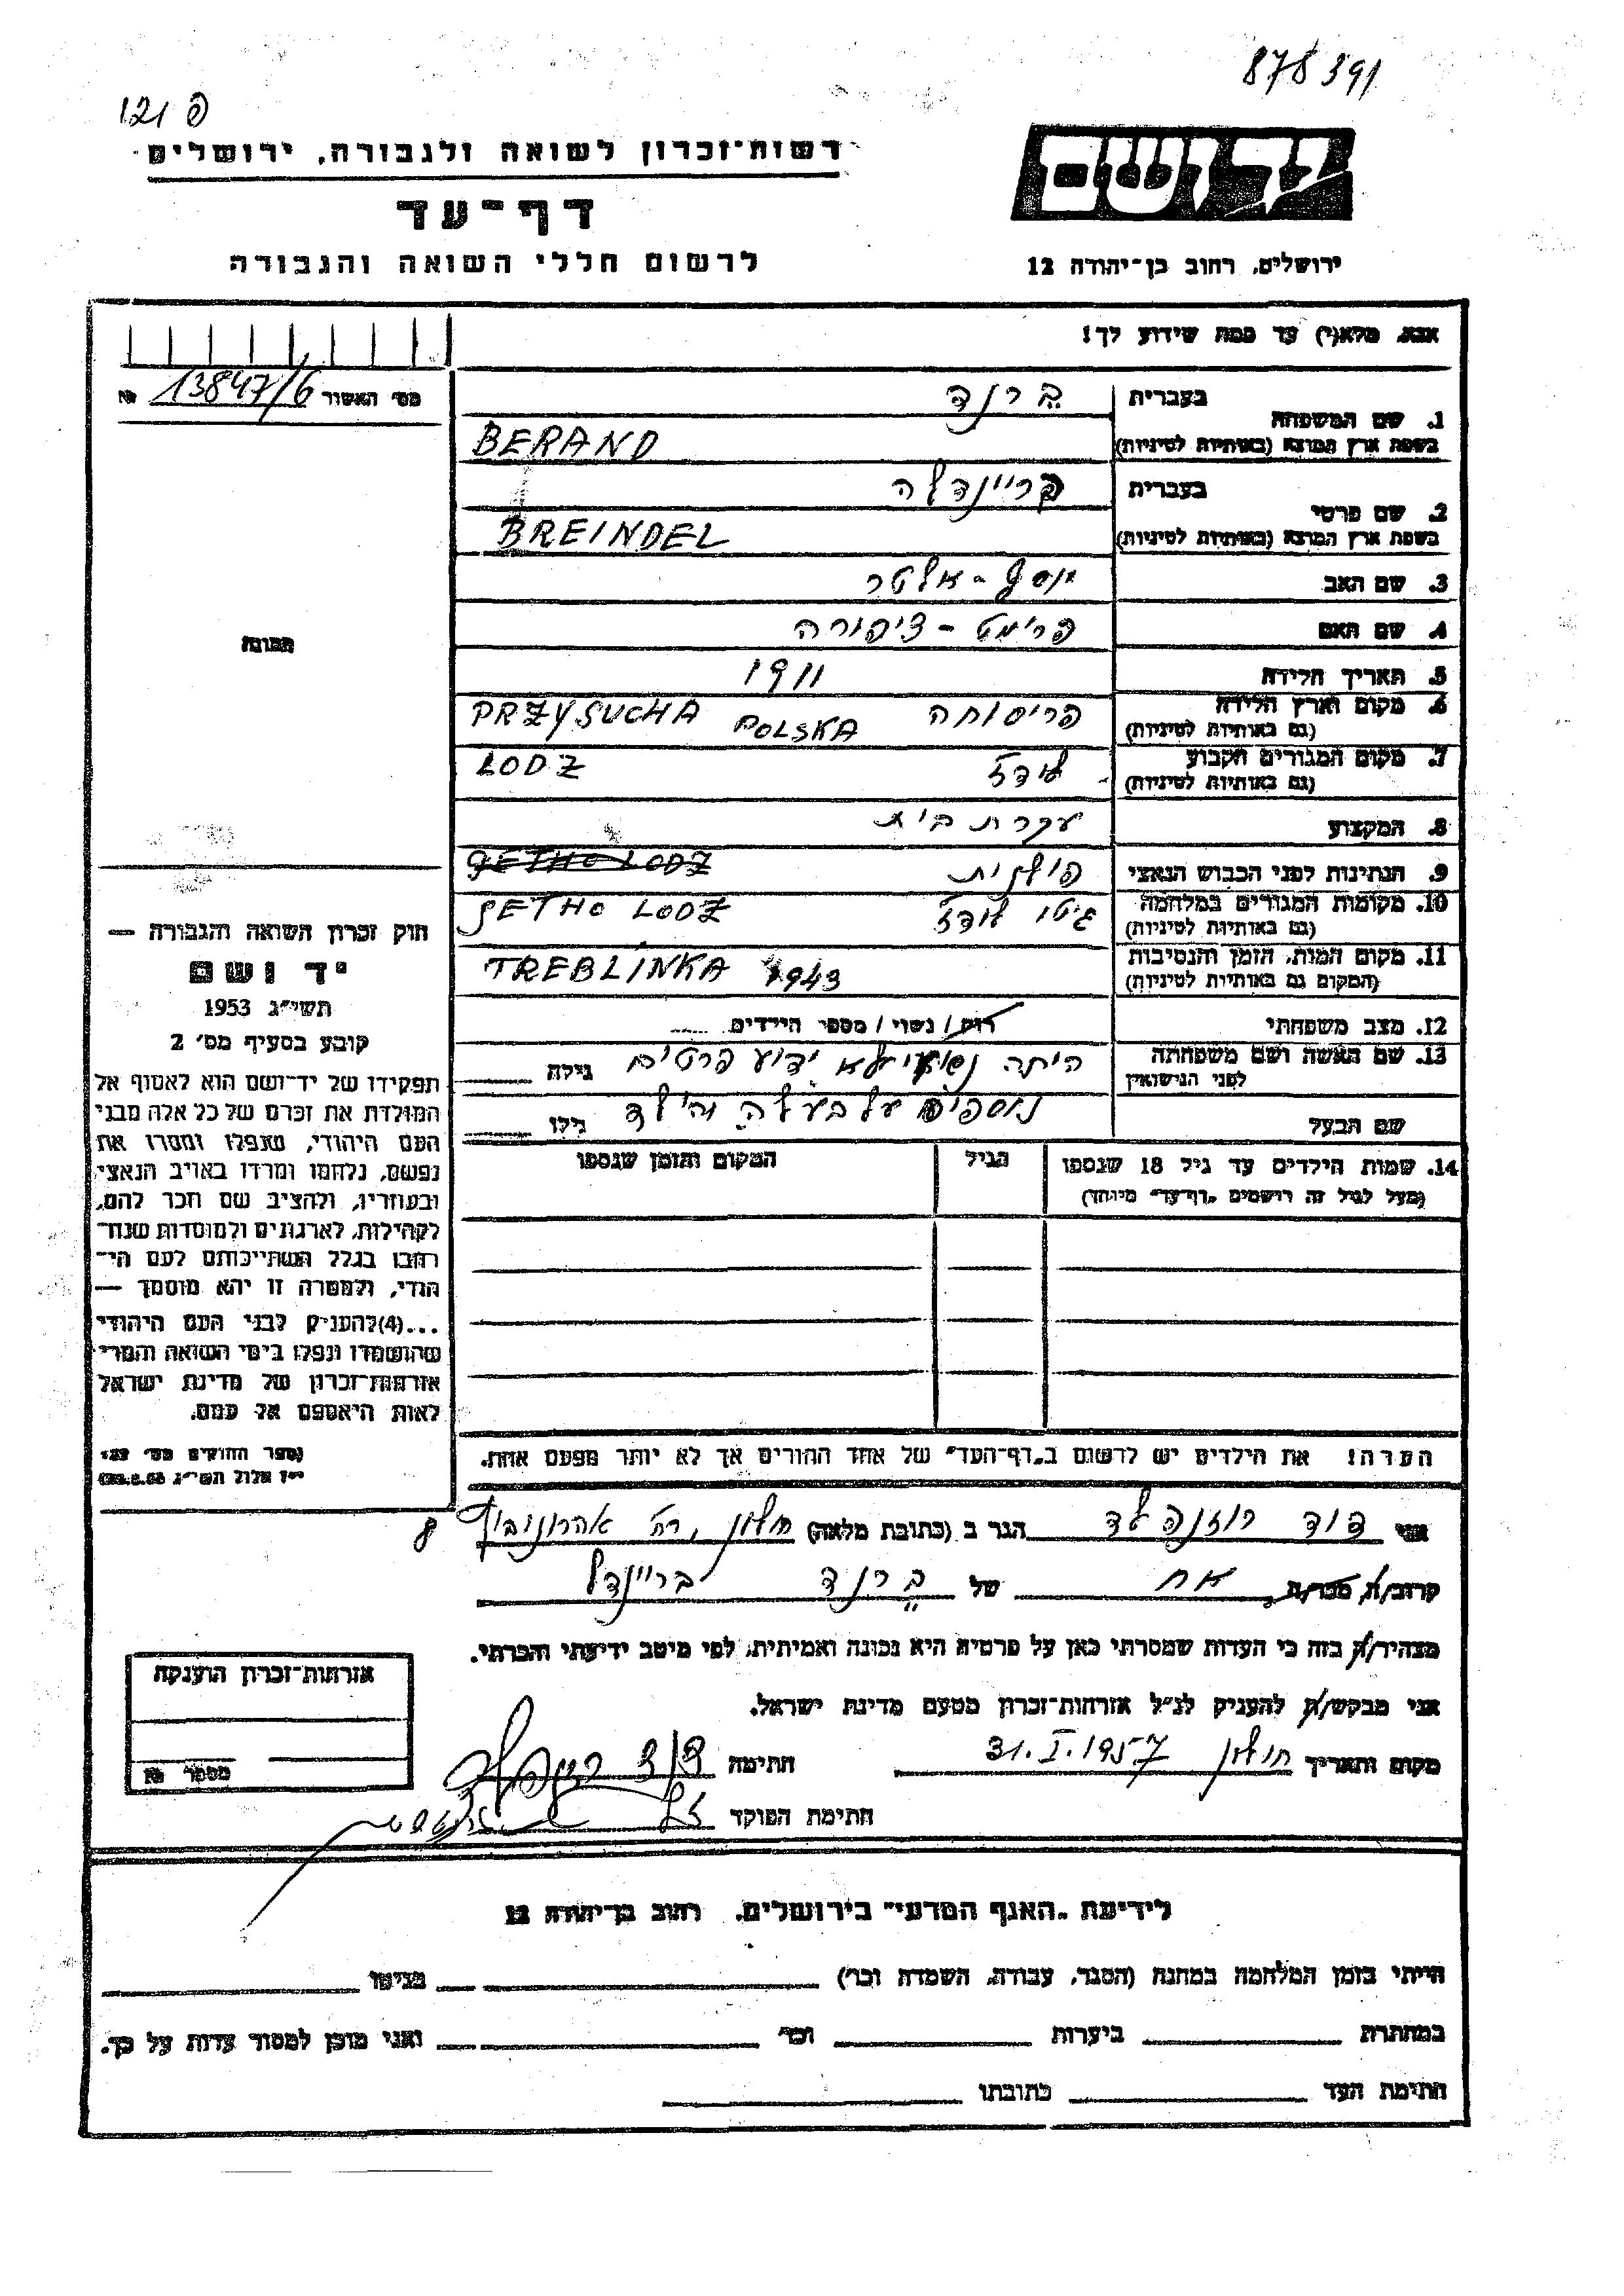 878391
פ 121
רשות־זכרון לשואה ולגבורה, ירושלים
יד ושם
דף־עד
לרשום חללי השואה והגבורה
ירושלים, רחוב בן־יהודה 12
אנא, מלא(י) עד כמה שידוע לך!
מס' האשור 13847/6 №
1. שם המשפחה
בעברית ברנד
בשפת ארץ המוצא (באותיות לטיניות) BERAND
2. שם פרטי
בעברית בריינדלה
בשפת ארץ המוצא (באותיות לטיניות) BREINDEL
3. שם האב יוסף - אלטר
4. שם האם פרימט - ציפורה
תמונה
5. תאריך הלידה 1911
6. מקום וארץ הלידה (גם באותיות לטיניות) פריסוחה POLSKA PRZYSUCHA
7. מקום המגורים הקבוע (גם באותיות לטיניות) לודז LODZ
8. המקצוע עקרת בית
9. הנתינות לפני הכבוש הנאצי פולנית GETHO LODZ
10. מקומות המגורים במלחמה (גם באותיות לטיניות) גיטו לודז GETHO LODZ
11. מקום המות, הזמן והנסיבות (המקום גם באותיות לטיניות) TREBLINKA 1943
12. מצב משפחתי רווק / נשוי / מספר הילדים
13. שם האשה ושם משפחתה לפני הנישואין היתה נשואה לא ידוע פרטים גילה
שם הבעל נוספים על בעלה והילד גילו
14. שמות הילדים עד גיל 18 שנספו הגיל המקום והזמן שנספו
(מעל לגיל זה רושמים "דף־עד" מיוחד)
חוק זכרון השואה והגבורה —
יד ושם
תשי"ג 1953
קובע בסעיף מס' 2
תפקידו של יד־ושם הוא לאסוף אל
המולדת את זכרם של כל אלה מבני
העם היהודי, שנפלו ומסרו את
נפשם, נלחמו ומרדו באויב הנאצי
ובעוזריו, ולהציב שם וזכר להם,
לקהילות, לארגונים ולמוסדות שנח־
רבו בגלל השתייכותם לעם הי־
הודי, ולמטרה זו יהא מוסמך —
...(4) להעניק לבני העם היהודי
שהושמדו ונפלו בימי השואה והמרי
אזרחות־זכרון של מדינת ישראל
לאות היאספם אל עמם.
(ספר החוקים מס' 132
י"ז אלול תשי"ג
הערה! את הילדים יש לרשום ב"דף־העד" של אחד ההורים אך לא יותר מפעם אחת.
אני דוד רוזנפלד הגר ב (כתובת מלאה) חולון, רח' אהרונוביץ 8
קרוב/ה, מכר/ה אח של ברנד בריינדל
מצהיר/ה בזה כי העדות שמסרתי כאן על פרטיה היא נכונה ואמיתית, לפי מיטב ידיעתי והכרתי.
אני מבקש/ת להעניק לנ"ל אזרחות־זכרון מטעם מדינת ישראל.
אזרחות־זכרון הוענקה
מספר №
מקום ותאריך חולון 31.I.1957 חתימה דוד רוזנפלד
חתימת הפוקד
לידיעת "האגף המדעי" בירושלים, רחוב בן־יהודה 12
הייתי בזמן המלחמה במחנה (הסגר, עבודה, השמדה וכו') בגיטו
במחתרת ביערות וכו' ואני מוכן למסור עדות על כך.
חתימת העד כתובתו